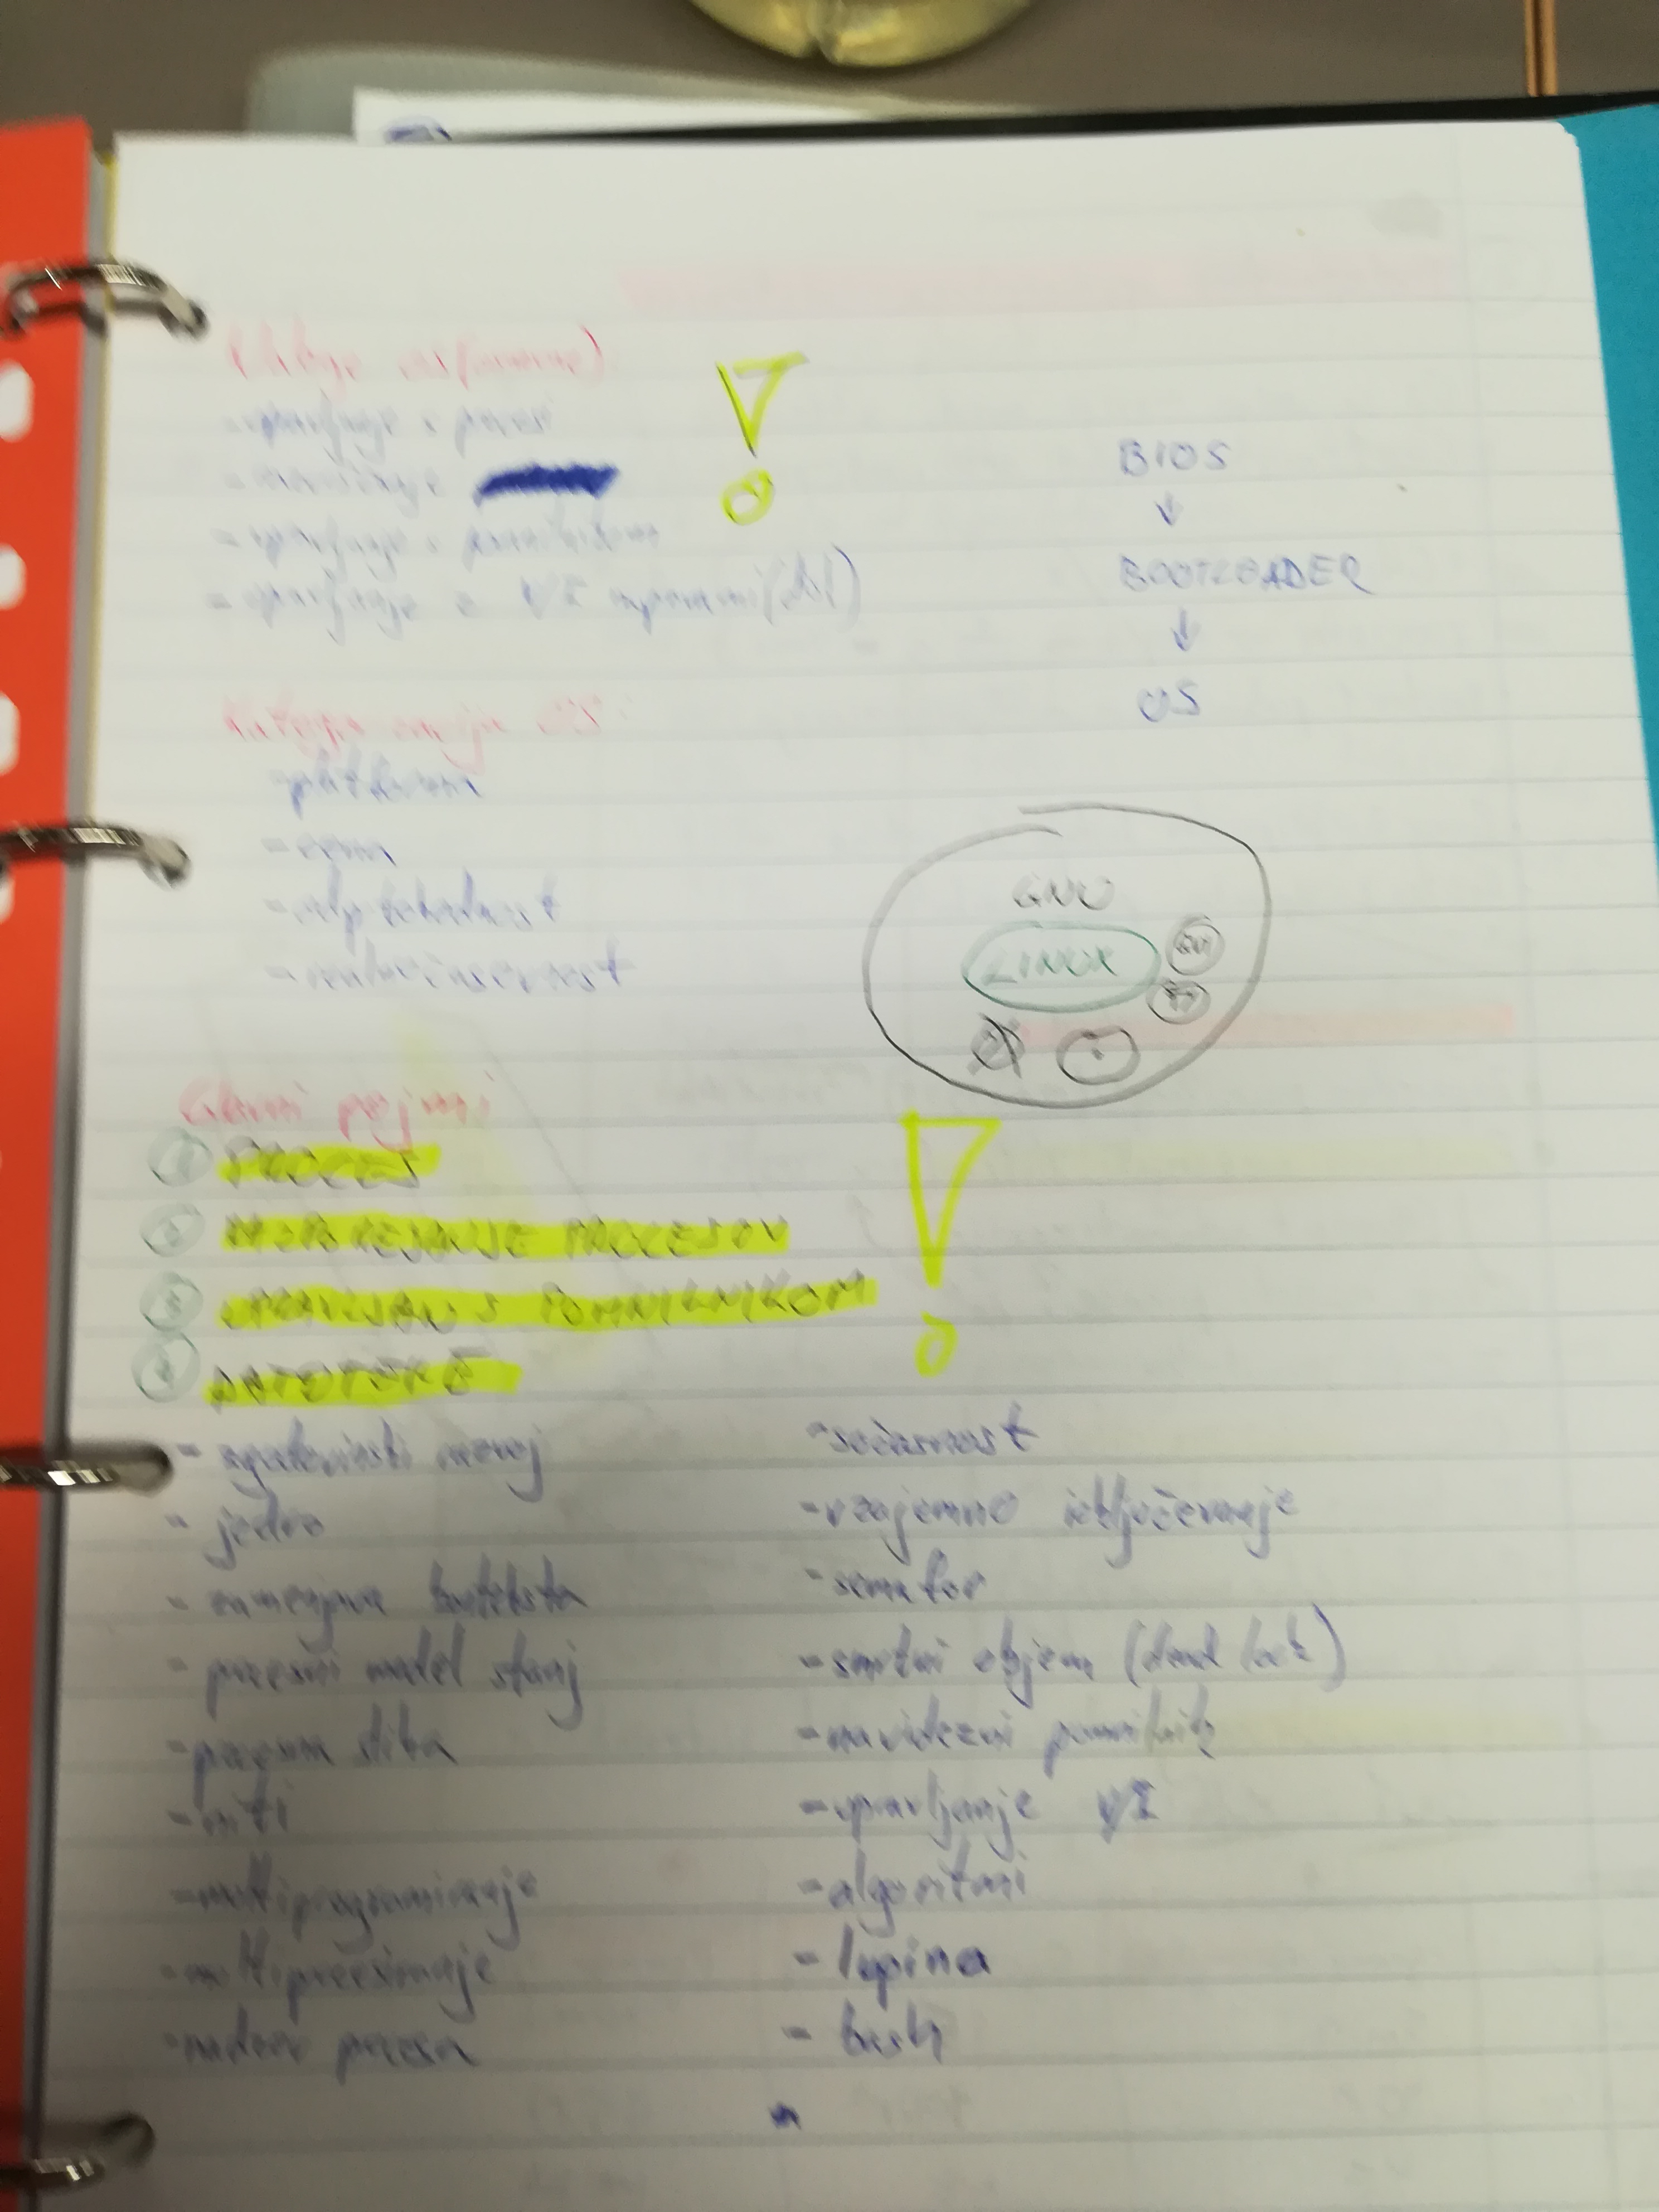 - upravljanje s procesi
-
- upravljanje s pomnilnikom
- upravljanje z V/I napravami
BIOS
↓
BOOTLOADER
↓
OS
Kategorizacija OS:
- platforma
- cena
- odprtokodnost
GNU
LINUX
GUI
Glavni pojmi
1 PROCES
2 RAZPOREJANJE PROCESOV
3 UPRAVLJANJE S POMNILNIKOM
4 DATOTEKE
- zgodovinski razvoj
- jedro
- zamenjava konteksta
- procesni model stanj
- procesna slika
- niti
- multiprogramiranje
- multiprocesiranje
- nadzor procesa
- sočasnost
- vzajemno izključevanje
- semafor
- smrtni objem (dead lock)
- navidezni pomnilnik
- upravljanje V/I
- algoritmi
- lupina
- bash